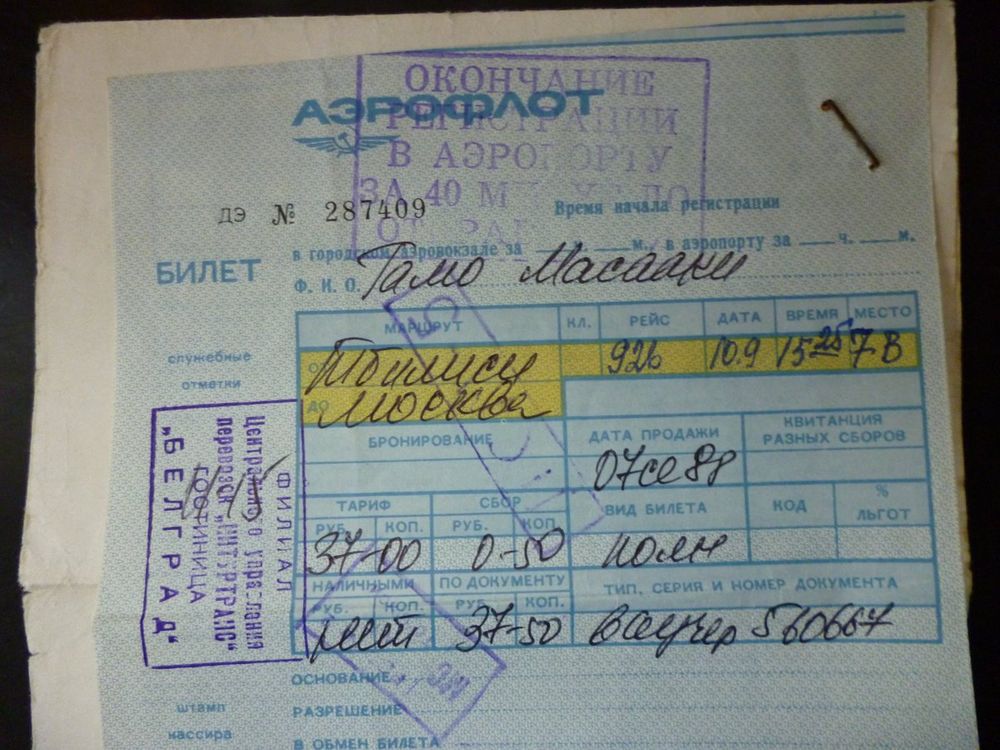 ОКОНЧАНИЕ
АЭРОФЛОТ
РЕГИСТРАЦИИ
В АЭРОПОРТУ
ЗА 40 МИН.
ДЭ № 287409
Время начала регистрации
в городском аэровокзале за ч. м., в аэропорту за ч. м.
БИЛЕТ
Ф. И. О. Гамо Масааки
МАРШРУТ КЛ. РЕЙС ДАТА ВРЕМЯ МЕСТО
ОТ Тбилиси 926 10.9 15 25 7В
ДО Москва
служебные
отметки
БРОНИРОВАНИЕ ДАТА ПРОДАЖИ КВИТАНЦИЯ РАЗНЫХ СБОРОВ
07се88
ТАРИФ СБОР ВИД БИЛЕТА КОД % ЛЬГОТ
РУБ. КОП. РУБ. КОП.
37-00 0-50 полн
НАЛИЧНЫМИ ПО ДОКУМЕНТУ ТИП, СЕРИЯ И НОМЕР ДОКУМЕНТА
РУБ. КОП. РУБ. КОП.
нет 37-50 ваучер 560667
ФИЛИАЛ
Центрального управления
перевозок „ИНТУРТРАНС"
ГОСТИНИЦА
„БЕЛГРАД"
ОСНОВАНИЕ
штамп
кассира
РАЗРЕШЕНИЕ
В ОБМЕН БИЛЕТА